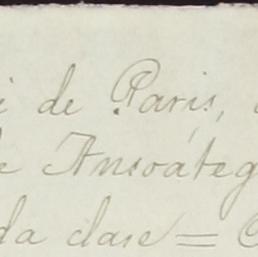 i de Paris,
e Ansoáteg
da clase =